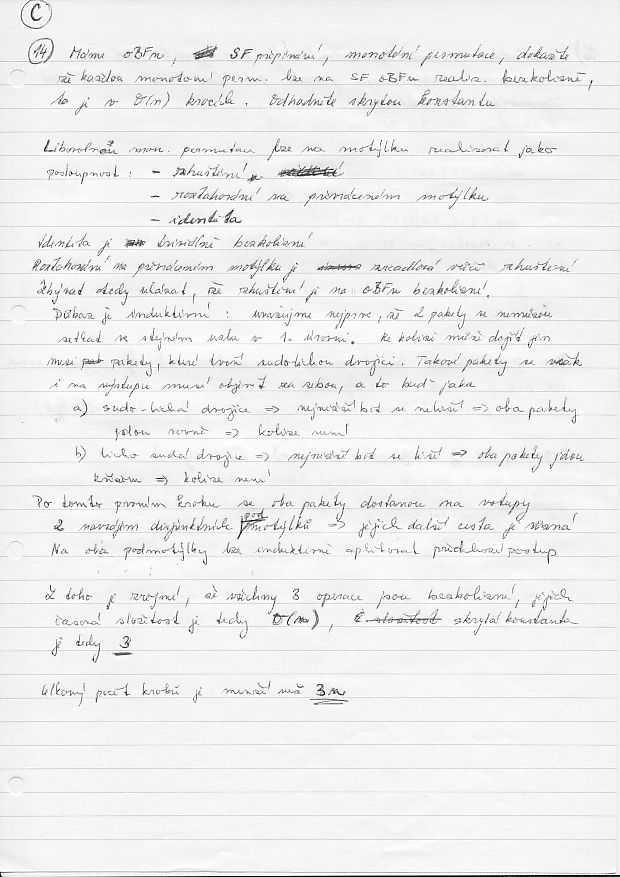 C
14) Máme oBFn, SF přepínání, monotónní permutace, dokažte
že každou monotonní perm. lze na SF oBFn realiz. bezkolizně,
to je v O(n) krocích. Odhadněte skrytou konstantu
Libovolnou mon. permutaci lze na motýlku realizovat jako
posloupnost: - zhuštění
- roztahování na převráceném motýlku
- identita
Identita je triviálně bezkolizní
Roztahování na převráceném motýlku je zrcadlová vůči zhuštění
Zbývá tedy ukázat, že zhuštění je na oBFn bezkolizní.
Důkaz je induktivní: uvažujme nejprve, že 2 pakety se nemůžou
setkat ve stejném uzlu v 1. úrovni. Ke kolizi může dojít jen
mezi pakety, které tvoří sudolichou dvojici. Takové pakety se však
i na výstupu musí objevit za sebou, a to buď jako
a) sudo-lichá dvojice => nejnižší bit se neliší => oba pakety
jdou rovně => kolize není!
b) licho sudá dvojice => nejnižší bit se liší => oba pakety jdou
křížem => kolize není!
Po tomto prvním kroku se oba pakety dostanou na vstupy
2 navzájem disjunktních podmotýlků => jejich další cesta je různá
Na oba podmotýlky lze induktivně aplikovat předchozí postup
Z toho je zřejmé, že všechny 3 operace jsou bezkolizní, jejich
časová složitost je tedy O(n), skrytá konstanta
je tedy 3
Celkový počet kroků je menší než 3n